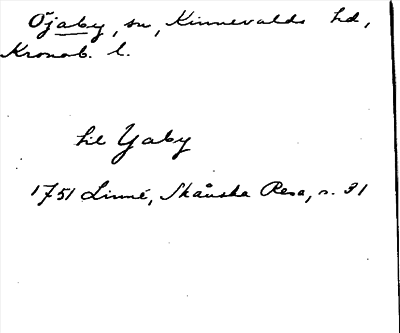 Öjaby, sn, Kinnevalds hd,
Kronob. l.
till Yaby
1751 Linné, Skånska Resa, s. 31